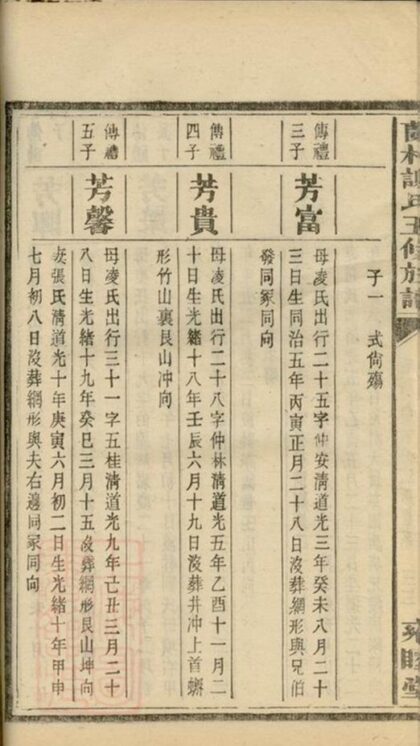 子一 式尙殤
傳禮
三子
芳富
母凌氏出行二十五字仲安淸道光三年癸未八月二十
三日生同治五年丙寅正月二十八日沒葬網形與兄伯
發同冢同向
傳禮
四子
芳貴
母凌氏出行二十八字仲林淸道光五年乙酉十一月二
十日生光緒十八年壬辰六月十九日沒葬井冲上首螄
形竹山裏艮山冲向
傳禮
五子
芳馨
母凌氏出行三十一字五桂淸道光九年己丑三月二十
八日生光緒十九年癸巳三月十五沒葬網形艮山坤向
妻張氏淸道光十年庚寅六月初二日生光緒十年甲申
七月初八日沒葬網形與夫右邊同冢同向